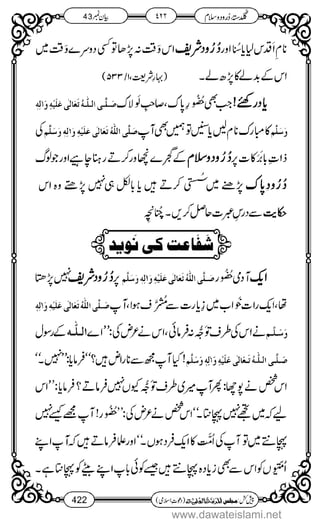 بیان نمبر 43
۴۲۲
گلدستۂ دُرُود وسلام
نامِ اقدس لیا یا سُنا اور دُرُود شریف اس وَقت نہ پڑھا تو کسی دوسرے وَقت میں
اس کے بدلے کا پڑھ لے۔ (بہارِ شریعت،۱/ ۵۳۳)
یاد رکھئے! جب بھی حُضُورِ پاک، صاحبِ لَولاک صَلَّی اللہُ تَعَالٰی عَلَیْہِ وَاٰلِہٖ
وَسَلَّم کا نامِ مبارک لیں یا سنیں تو ہمیں بھی آپ صَلَّی اللہُ تَعَالٰی عَلَیْہِ وَاٰلِہٖ وَسَلَّم کی
ذاتِ بابَرَکات پر دُرُود وسلام کے گجرے نچھاور کرتے رہنا چاہیے اور جو لوگ
دُرُودِ پاک پڑھنے میں سُستی کرتے ہیں یا بالکل ہی نہیں پڑھتے وہ اس
حکایت سے درسِ عبرت حاصل کریں۔ چُنانچہ
شفاعت کی نوید
ایک آدمی حُضُور صَلَّی اللہُ تَعَالٰی عَلَیْہِ وَاٰلِہٖ وَسَلَّم پر دُرُود شریف نہیں پڑھتا
تھا، ایک رات خواب میں زیارت سے مُشرَّف ہوا، آپ صَلَّی اللہُ تَعَالٰی عَلَیْہِ وَاٰلِہٖ
وَسَلَّم نے اس کی طرف توَجُّہ نہ فرمائی، اس نے عرض کی: ’’اے اللہ کے رسول
صَلَّی اللہُ تَعَالٰی عَلَیْہِ وَاٰلِہٖ وَسَلَّم! کیا آپ مجھ سے ناراض ہیں؟‘‘ فرمایا: ’’نہیں۔‘‘
اس شخص نے پوچھا: پھر آپ میری طرف توَجُّہ کیوں نہیں فرماتے؟ فرمایا: ’’اس
لیے کہ میں تجھے نہیں پہچانتا۔‘‘ اس شخص نے عرض کی: ’’حُضُور! آپ مجھے کیسے نہیں
پہچانتے میں تو آپ کی اُمّت کا ایک فرد ہوں۔‘‘ اور علما فرماتے ہیں کہ آپ اپنے
اُمتیوں کو اس سے بھی زیادہ پہچانتے ہیں جیسے کوئی باپ اپنے بیٹے کو پہچانتا ہے۔
422
www.dawateislami.net